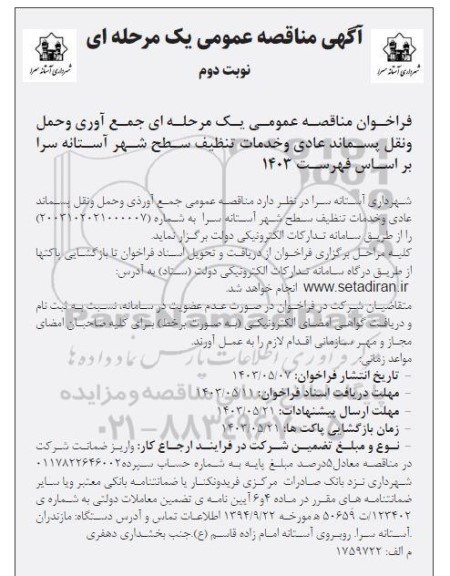 آگهی مناقصه عمومی یک مرحله ای
نوبت دوم
شهرداری آستانه سرا
شهرداری آستانه سرا
فراخوان مناقصه عمومی یک مرحله ای جمع آوری وحمل
ونقل پسماند عادی وخدمات تنظیف سطح شهر آستانه سرا
بر اساس فهرست ۱۴۰۳
شهرداری آستانه سرا در نظر دارد مناقصه عمومی جمع آورذی وحمل ونقل پسماند
عادی وخدمات تنظیف سطح شهر آستانه سرا به شماره (۲۰۰۳۱۰۲۰۲۱۰۰۰۰۰۷)
را از طریق سامانه تدارکات الکترونیکی دولت برگزار نماید.
کلیه مراحل برگزاری فراخوان از دریافت و تحویل اسناد فراخوان تا بازگشایی پاکتها
از طریق درگاه سامانه تدارکات الکترونیکی دولت (ستاد) به آدرس:
www.setadiran.ir انجام خواهد شد.
متقاضیان شرکت در فراخوان در صورت عدم عضویت در سامانه، نسبت به ثبت نام
و دریافت گواهی امضای الکترونیکی (به صورت برخط) برای کلیه صاحبان امضای
مجاز و مهر سازمانی اقدام لازم را به عمل آورند.
مواعد زمانی:
- تاریخ انتشار فراخوان: ۱۴۰۳/۰۵/۰۷
- مهلت دریافت اسناد فراخوان: ۱۴۰۳/۰۵/۱۱
- مهلت ارسال پیشنهادات: ۱۴۰۳/۰۵/۲۱
- زمان بازگشایی پاکت ها: ۱۴۰۳/۰۵/۲۱
- نوع و مبلغ تضمین شرکت در فرایند ارجاع کار: واریز ضمانت شرکت
در مناقصه معادل۵درصد مبلغ پایه به شماره حساب سپرده۰۱۱۷۸۲۲۶۴۶۰۰۲
شهرداری نزد بانک صادرات مرکزی فریدونکنار یا ضمانتنامه بانکی معتبر ویا سایر
ضمانتنامه های مقرر در ماده ۴و۶ آیین نامه ی تضمین معاملات دولتی به شماره ی
۱۲۳۴۰۲/ت ۵۰۶۵۹ ه مورخه ۱۳۹۴/۹/۲۲ اطلاعات تماس و آدرس دستگاه: مازندران
.آستانه سرا. روبروی آستانه امام زاده قاسم (ع).جنب بخشداری دهفری
م الف: ۱۷۵۹۷۲۲
ParsNamadData
فرآوری اطلاعات پارس نماد داده ها
پایگاه ملی مناقصه و مزایده